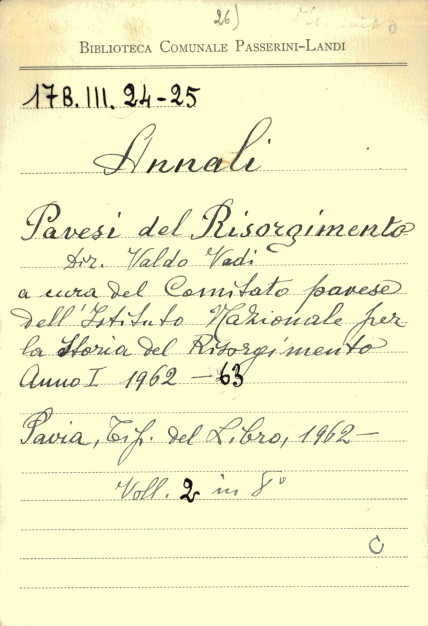 26)
BIBLIOTECA COMUNALE PASSERINI-LANDI
17B.III.24-25
Annali
Pavesi del Risorgimento
Dir. Valdo Vadi
a cura del Comitato pavese
dell'Istituto Nazionale per
la Storia del Risorgimento
Anno I 1962 - 63
Pavia, Tip. del Libro, 1962-
Voll. 2 in 8°
C